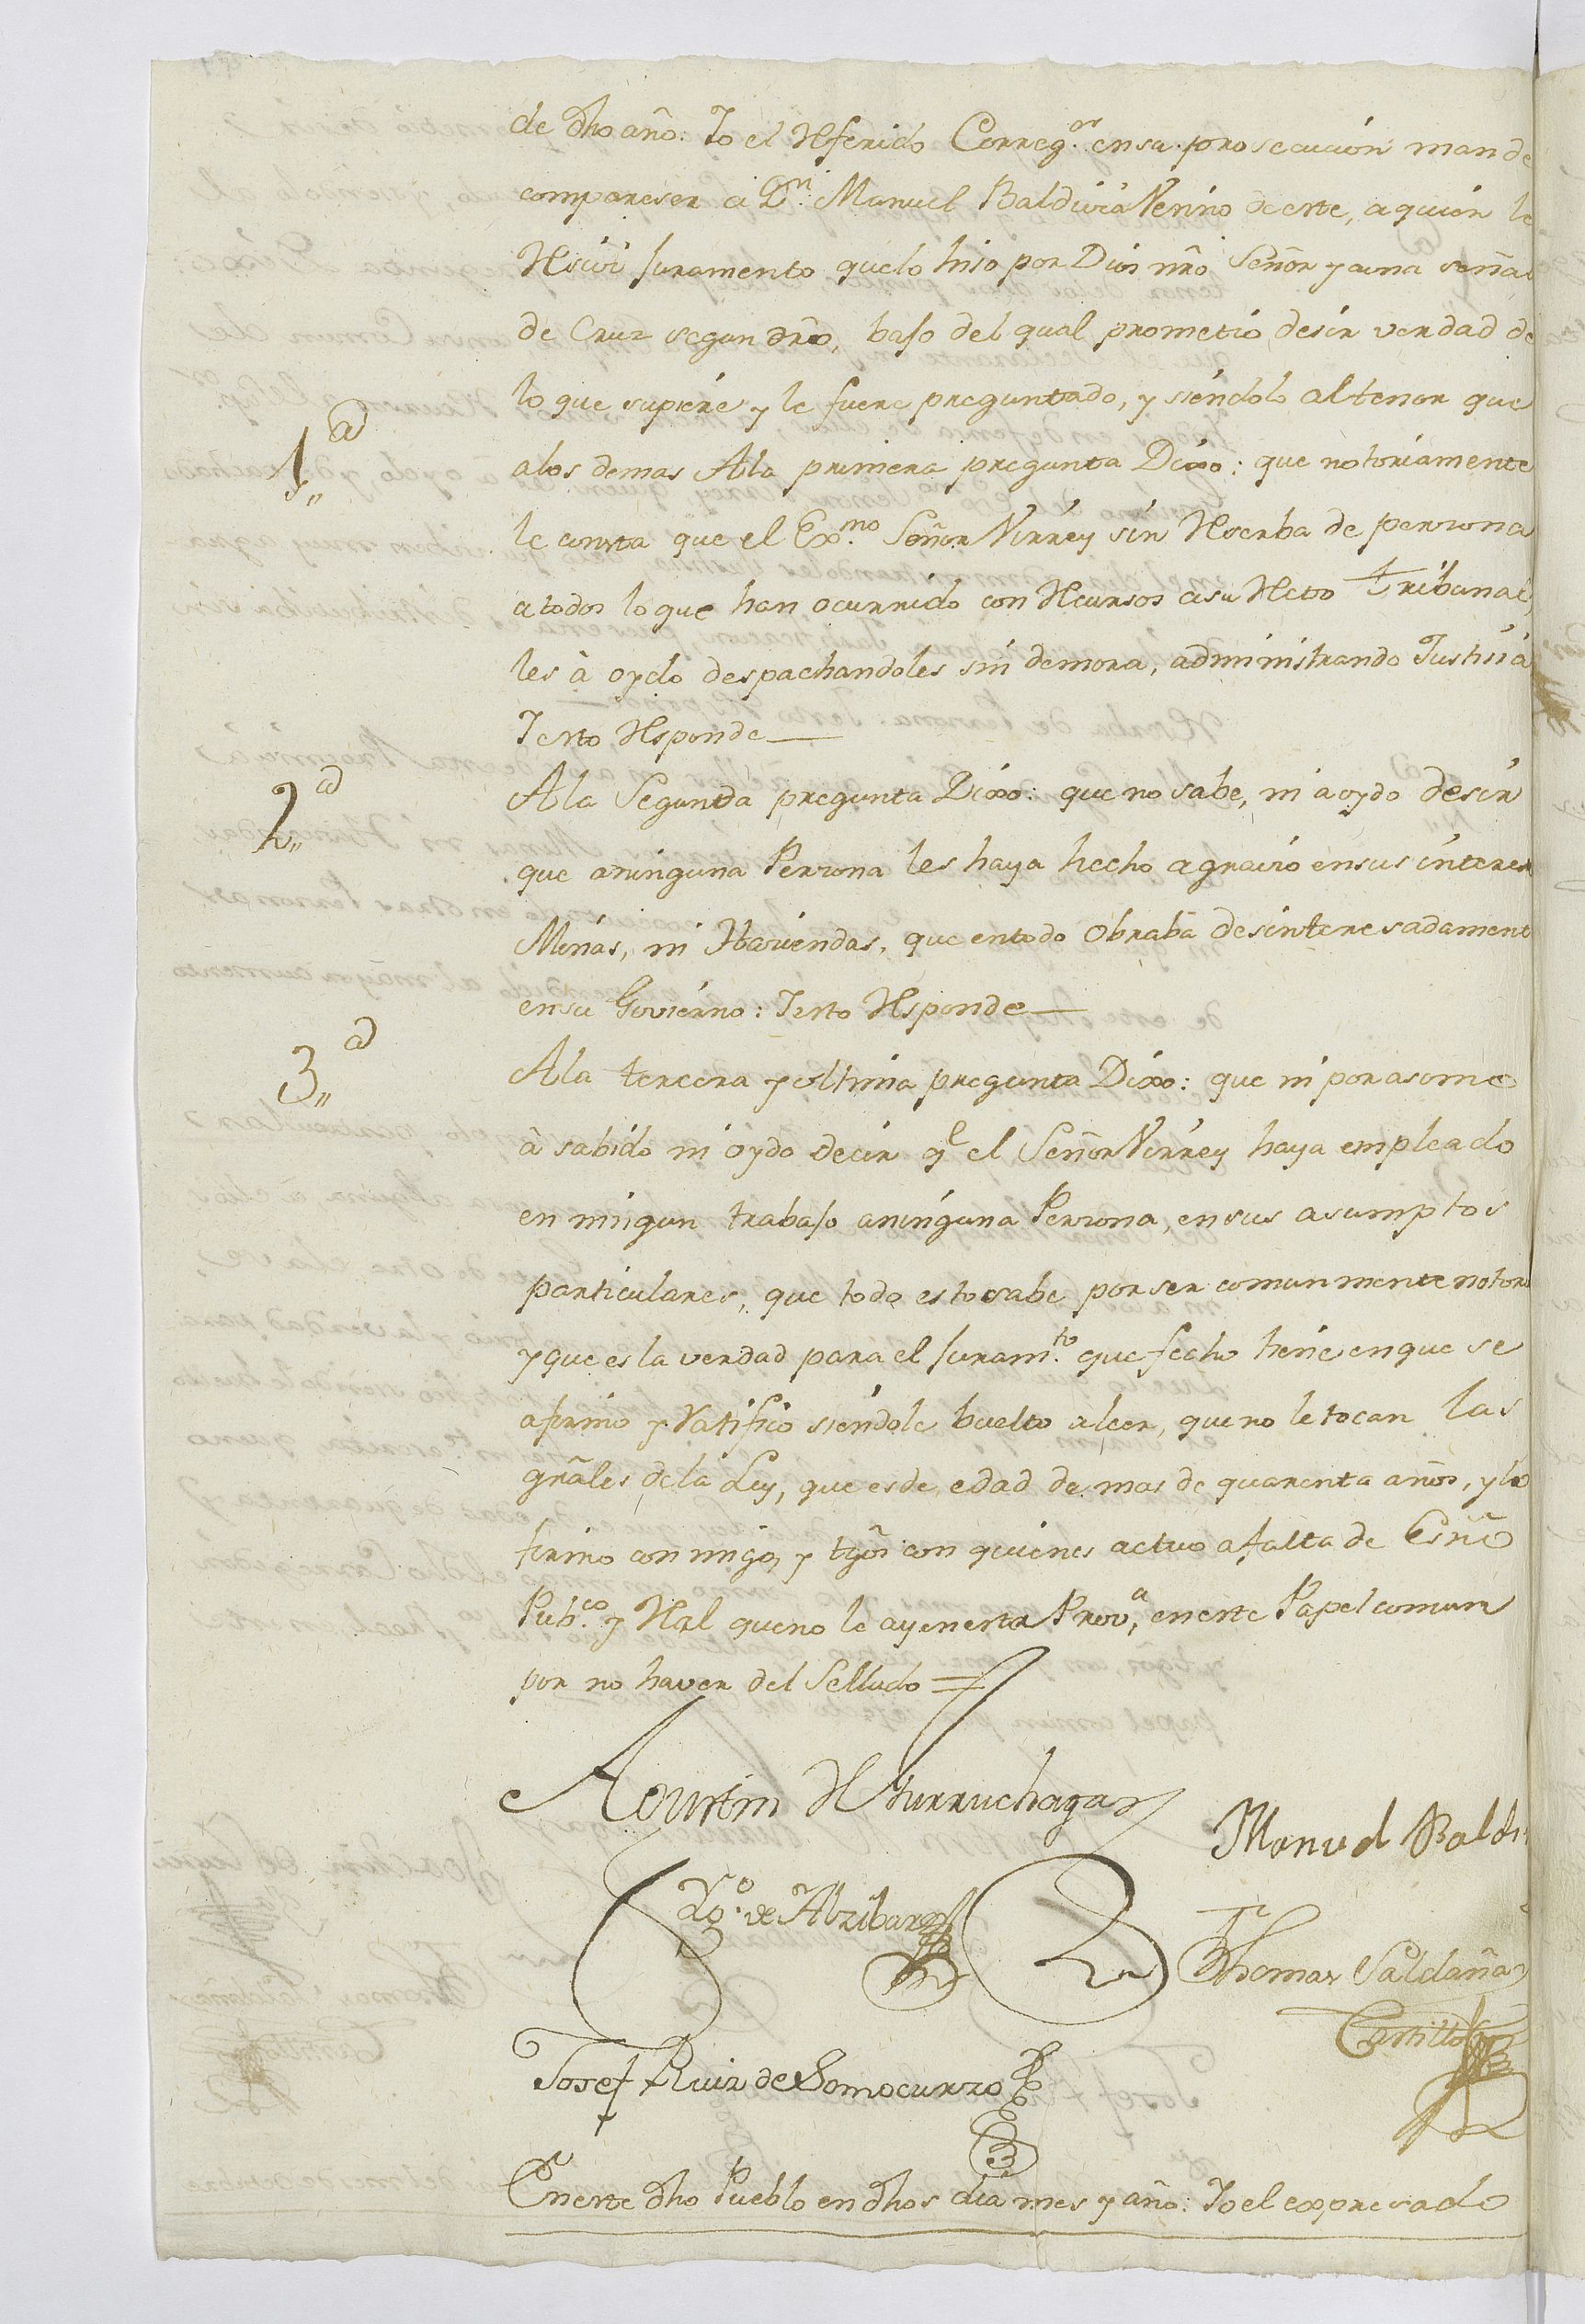 de dho año: Io el Referido Correg.or en su prosecucion mande
compareser a D.n Manuel Baldivia Vesino de este, a quien le
Resivi Juramento que lo hiso por Dios nro Señor y a una señal
de Cruz segun dro, bajo del qual prometio desir verdad de
lo que supiere y le fuere preguntado, y siendolo al tenor que
1,,a
a los demas A la primera pregunta Dixo: que notoriamente
le consta que el Ex.mo Señor Virrey sin Reserba de perzona
a todos lo que han ocurrido con Recursos a su Recto Tribunal,
les à oydo despachandoles sin demora, administrando Justisia
I esto Responde
2,,a
A la Segunda pregunta Dixo: que no sabe, ni a oydo desir
que a ninguna Perzona les haya hecho agravio en sus interes
Minas, ni Haziendas, que en todo Obraba desinteresadament
en su Govierno: I esto Responde
3,,a
A la tercera y ultima pregunta Dixo: que ni por asomo
à sabido ni oydo decir qe el Señor Virrey haya empleado
en ningun trabajo a ninguna Perzona, en sus asumptos
particulares, que todo esto sabe por ser comunmente notorio
y que es la verdad para el Juram.to que fecho tiene en que se
afirmo y Ratifico siendole buelto a leer, que no le tocan las
grales de la Ley, que es de edad de mas de quarenta años, y lo
firmo conmigo, y tgos con quienes actuo a falta de Esño
Pub.co y Rral que no le ay en esta Prov.a, en este Papel comun
por no haver del Sellado =
Agustin de Iturruchaga
Manuel Baldi
Do. de Alzibar
Thomas Saldaña
Castillo
Josef Ruiz de Somocurzo
En este dho Pueblo en dhos dia mes y año: Io el expresado